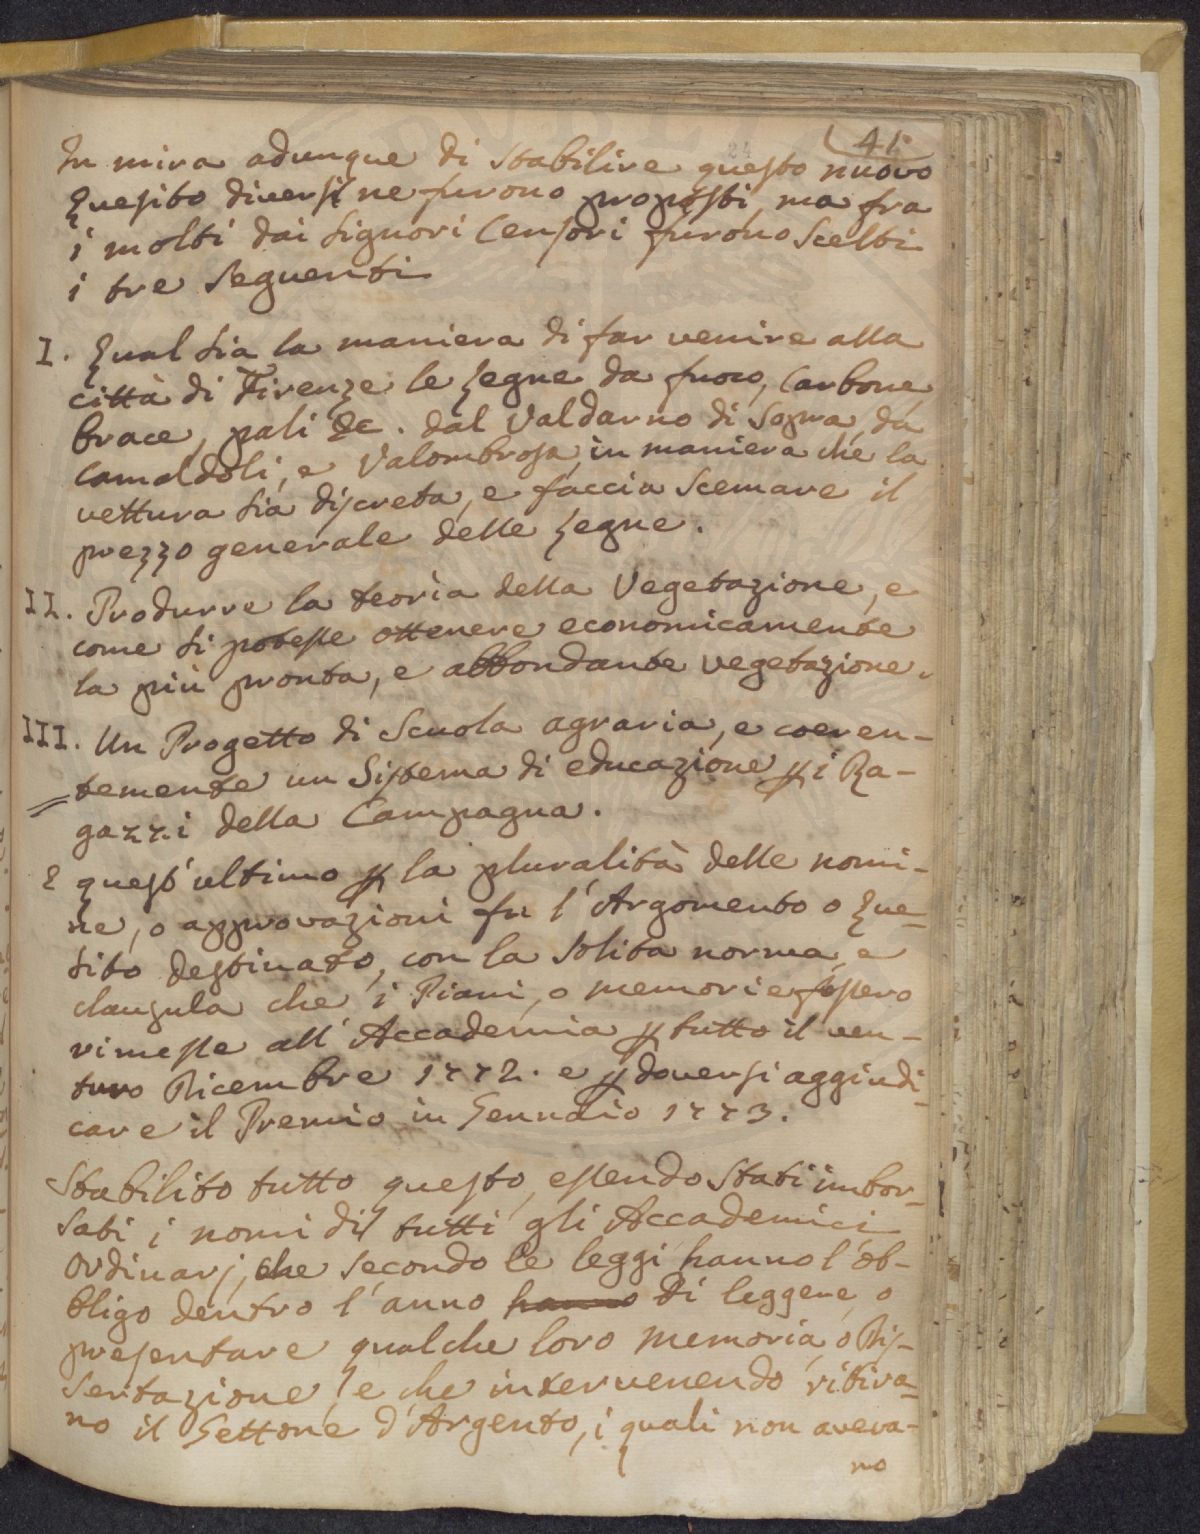 41.
In mira adunque di Stabilire questo nuovo
Quesito diversi ne furono proposti, ma fra
i molti dai Signori Censori furono Scelti
i tre Seguenti
I. Qual sia la maniera di far venire alla
città di Firenze le Legne da fuoco, Carbone
brace, pali &c. dal Valdarno di Sopra, da
Camaldoli, e Valombrosa, in maniera che la
vettura sia discreta, e faccia Scemare il
prezzo generale delle Legne.
II. Produrre la teoria della Vegetazione, e
come si potesse ottenere economicamente
la più pronta, e abbondante vegetazione.
III. Un Progetto di Scuola agraria, e coeren-
temente un Sistema di educazione p i Ra-
gazzi della Campagna.
E quest'ultimo p la pluralità delle nomi-
ne, o approvazioni fu l'Argomento o Que-
sito destinato, con la solita norma, e
clausula che i Piani, o memorie fossero
rimesse all'Accademia p tutto il ven-
turo Dicembre 1772. e p doversi aggiudi-
care il Premio in Gennaio 1773.
Stabilito tutto questo, essendo Stati imbor-
sati i nomi di tutti gli Accademici
Ordinarj, che secondo le leggi hanno l'ob-
bligo dentro l'anno hanno di leggere, o
presentare qualche loro memoria, o Dis-
sertazione, e che intervenendo ritira-
no il Gettone d'Argento, i quali non aveva-
no